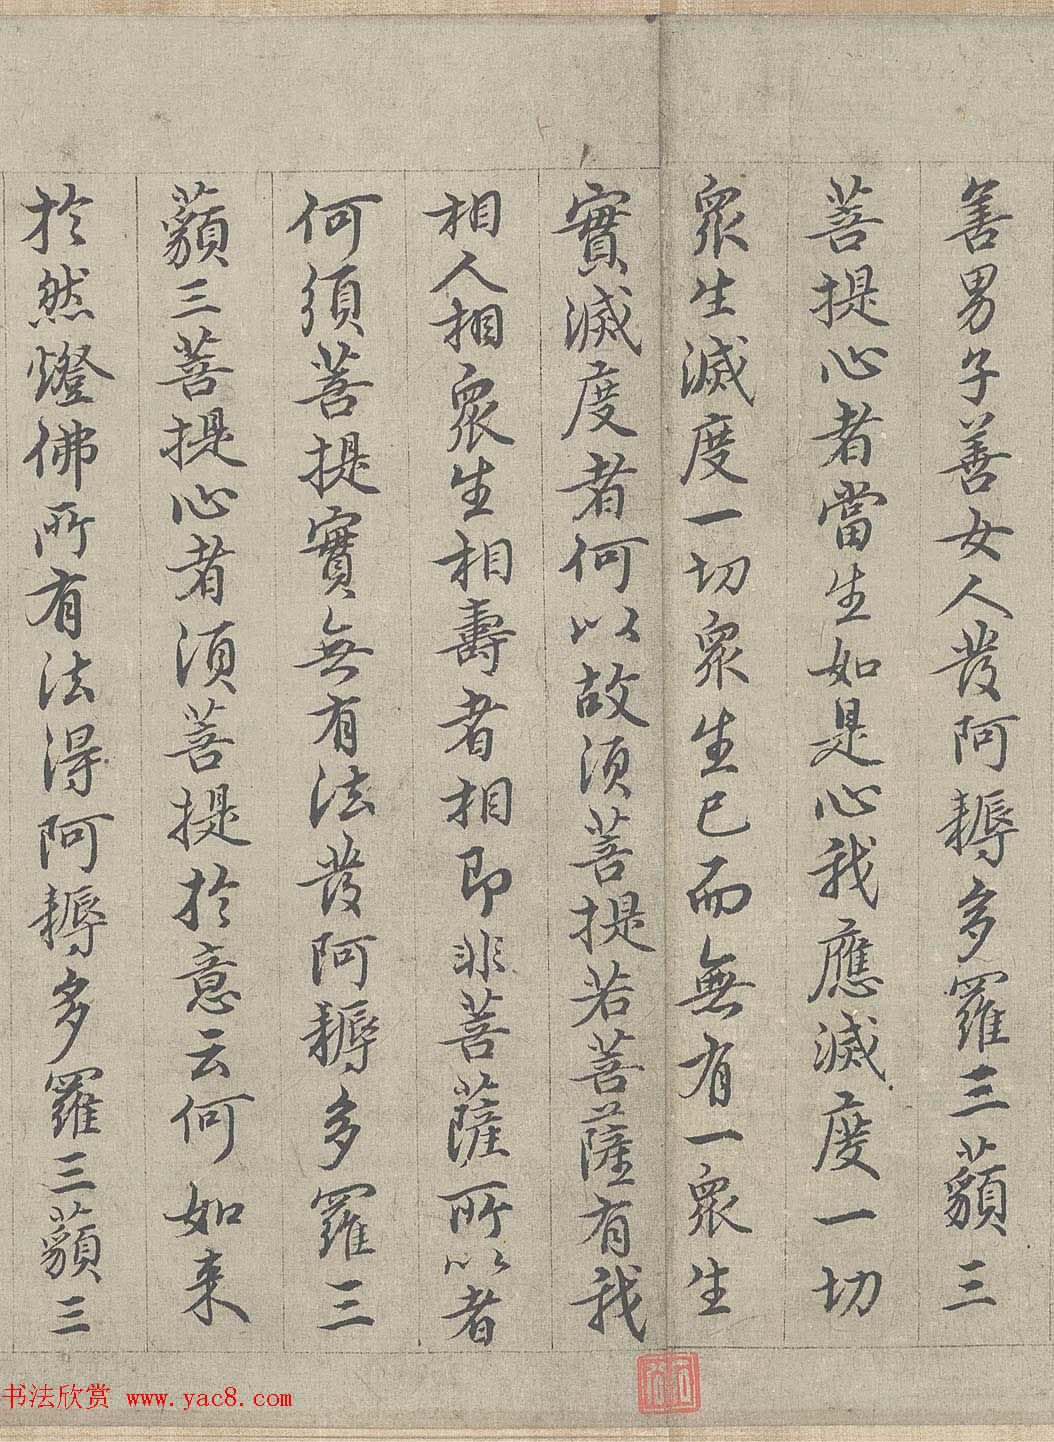 善男子善女人發阿耨多羅三藐三
菩提心者當生如是心我應滅度一切
眾生滅度一切眾生已而無有一眾生
實滅度者何以故須菩提若菩薩有我
相人相眾生相壽者相即非菩薩所以者
何須菩提實無有法發阿耨多羅三
藐三菩提心者須菩提於意云何如来
於然燈佛所有法得阿耨多羅三藐三
书法欣赏 www.yac8.com